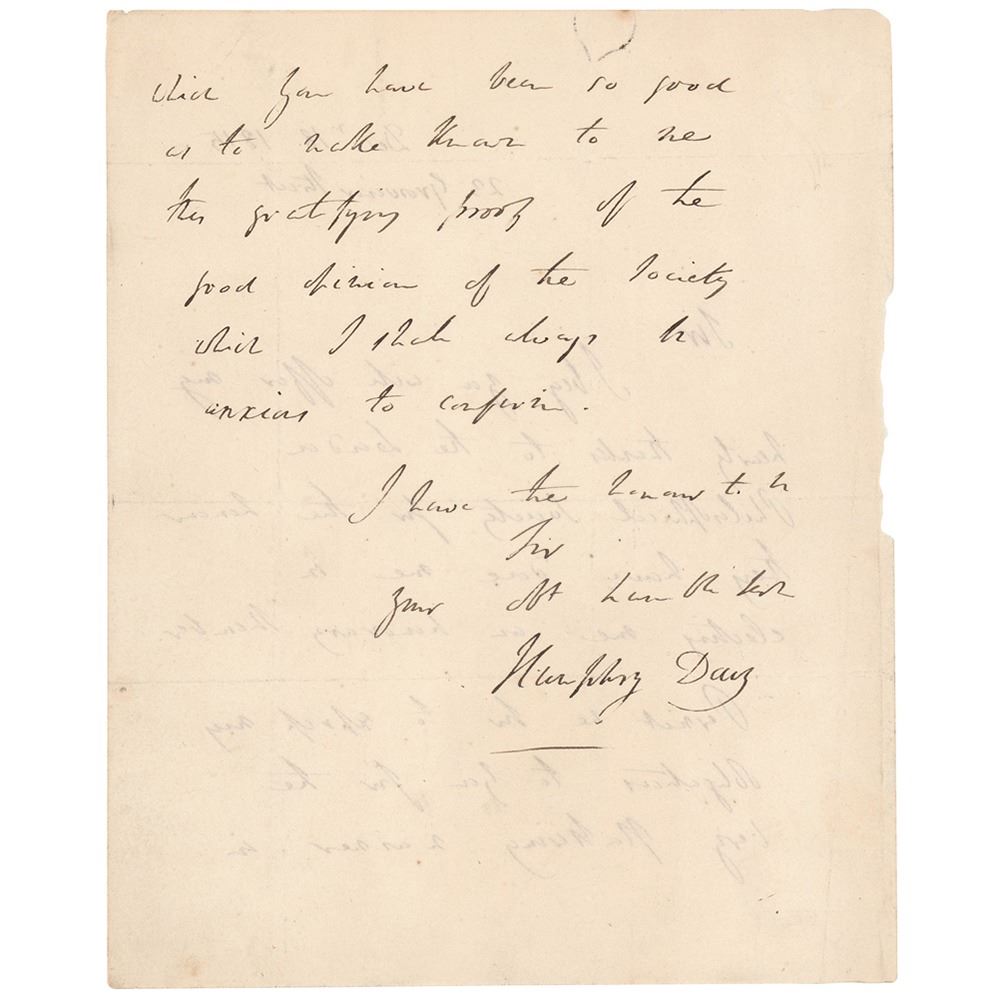 which you have been so good
as to make known to me
this gratifying proof of the
good opinion of the Society
which I shall always be
anxious to confirm.
I have the honour to be
Sir
your obt humble sert
Humphry Davy